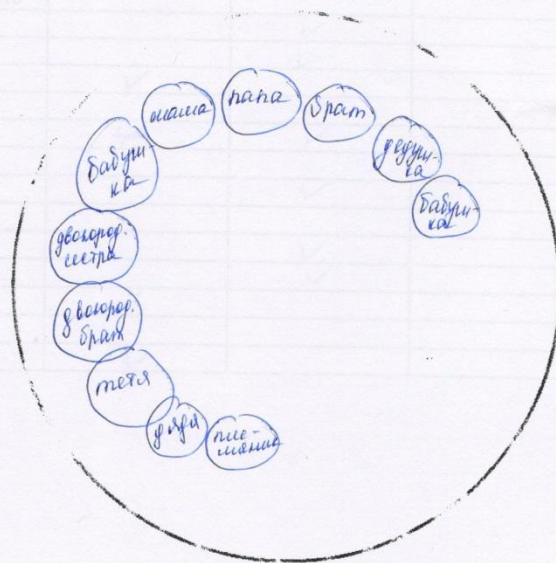 мама
папа
брат
дедуш-
ка
бабуш-
ка
бабуш-
ка
двоюрод.
сестра
двоюрод.
брат
тётя
дядя
пле-
мянник